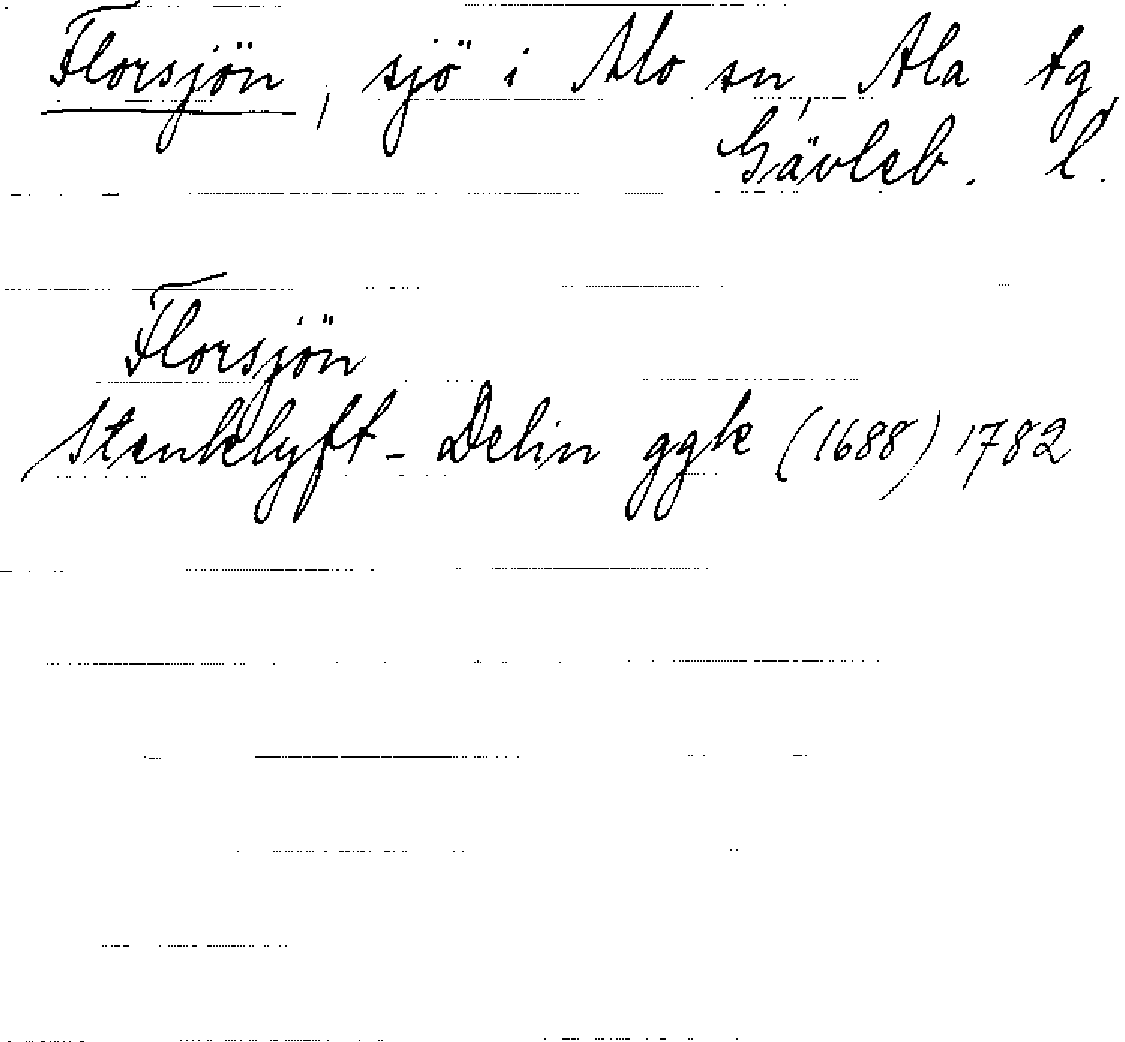 Florsjön, sjö i Mo sn, Ala tg,
Gävleb. l.
Florsjön
Stenklyft-Delin ggk (1688) 1782